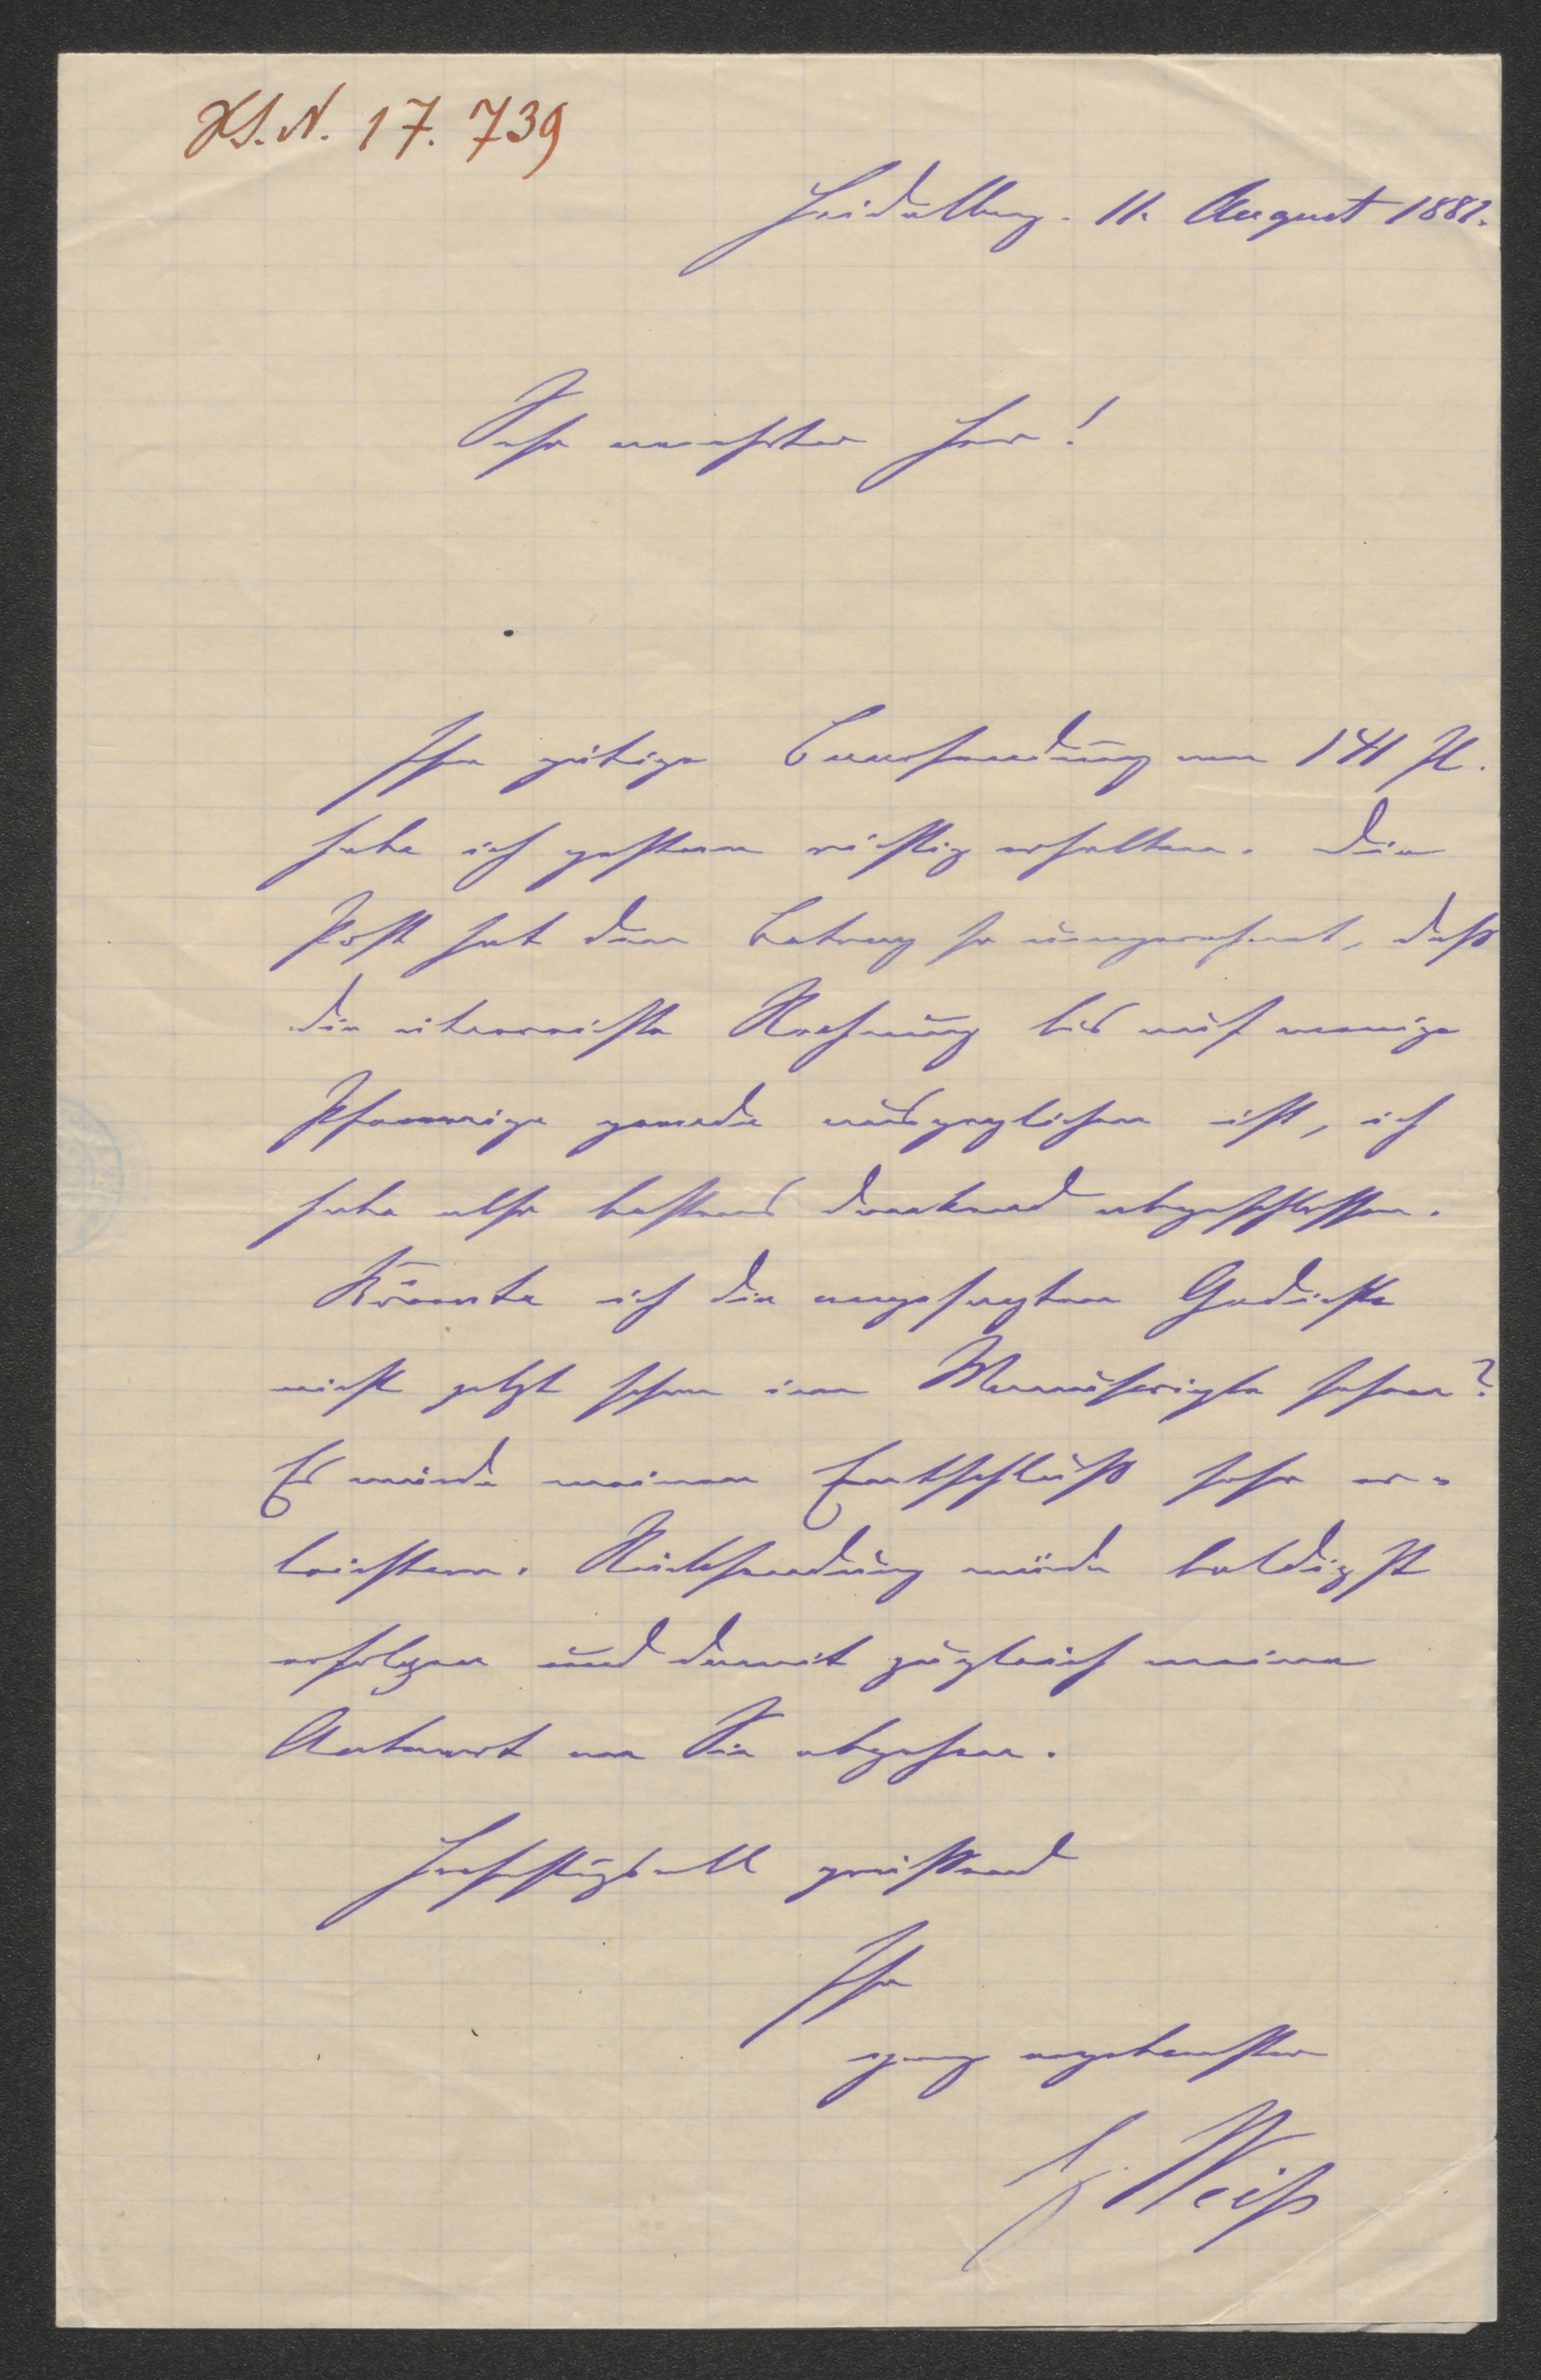 H.I.N. 17.739
Heidelberg. 11. August 1881.
Sehr verehrter Herr!
Ihre gütige Baarsendung von 141 fl.
habe ich gestern richtig erhalten. Die
Post hat den Betrag so umgerechnet, daß
die überreichte Rechnung bis auf wenige
Pfennige gerade ausgeglichen ist, ich
habe also bestens dankend abgeschlossen.
Könnte ich die angefragten Gedichte
nicht jetzt schon im Manuscripte sehen?
Es würde meinen Entschluß sehr er-
leichtern. Rücksendung würde baldigst
erfolgen und damit zugleich meine
Antwort an Sie abgehen.
Hochachtungsvoll grüßend
Ihr
ganz ergebenster
G. Weiß